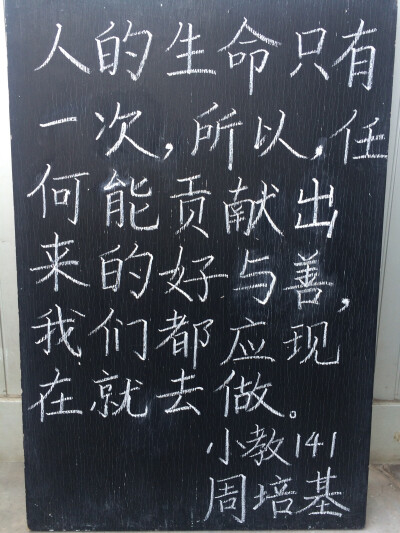 人的生命只有
一次,所以,任
何能贡献出
来的好与善,
我们都应现
在就去做。
小教141
周培基